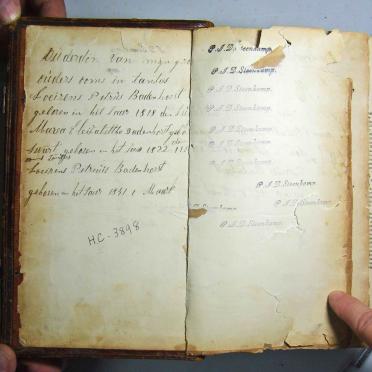 van
ouders ooms en tantes
Loeirens Petrus Badenhorst
geboren in het Jaar 1818 den
Maria
geboren in het Jaar 1822
Loeirens Petruts Badenhorst
geboren in het Jaar 1841 1 Maart
H.C-3898
P. A. D. Steenkamp.
P. A. D. Steenkamp.
P. A. D. Steenkamp.
P. A. D. Steenkamp.
P. A. D. Steenkamp.
P. A. D. Steenkamp.
P. A. D. Steenkamp.
P. A. D. Steenkamp.
P. A. D. Steenkamp.
Steenkamp.
P. A. D. Steenkamp.